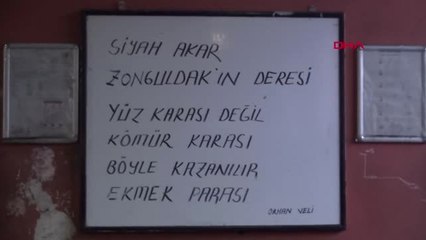 SİYAH AKAR
ZONGULDAK'IN DERESİ
YÜZ KARASI DEĞİL
KÖMÜR KARASI
BÖYLE KAZANILIR
EKMEK PARASI
ORHAN VELİ